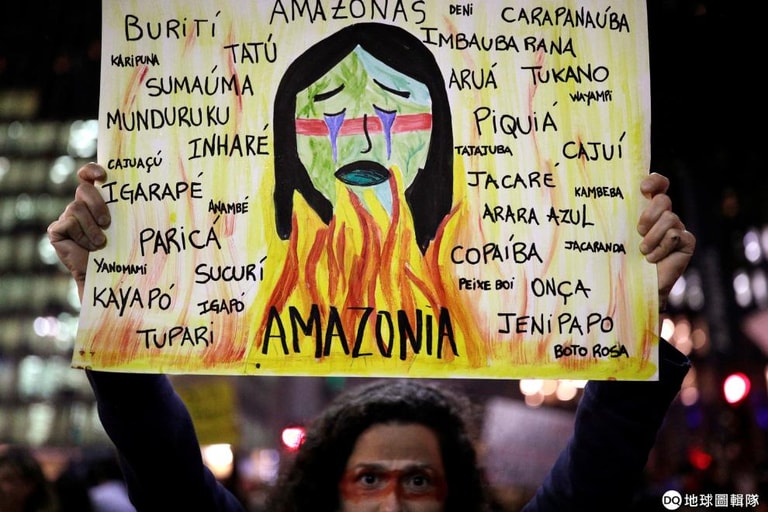 AMAZONAS
DENI
CARAPANAÚBA
BURITÍ
IMBAUBARANA
KARIPUNA
TATÚ
SUMAÚMA
ARUÁ
TUKANO
WAYAMPI
MUNDURUKU
PIQUIÁ
INHARÉ
TATAJUBA
CAJUÍ
CAJUAÇÚ
JACARÉ
IGARAPÉ
KAMBEBA
ANAMBÉ
ARARA AZUL
PARICÁ
COPAÍBA
JACARANDA
YANOMAMI
SUCURÍ
PEIXE BOI
ONÇA
KAYAPÓ
IGAPÓ
AMAZONIA
JENIPAPO
TUPARI
BOTO ROSA
DQ 地球圖輯隊